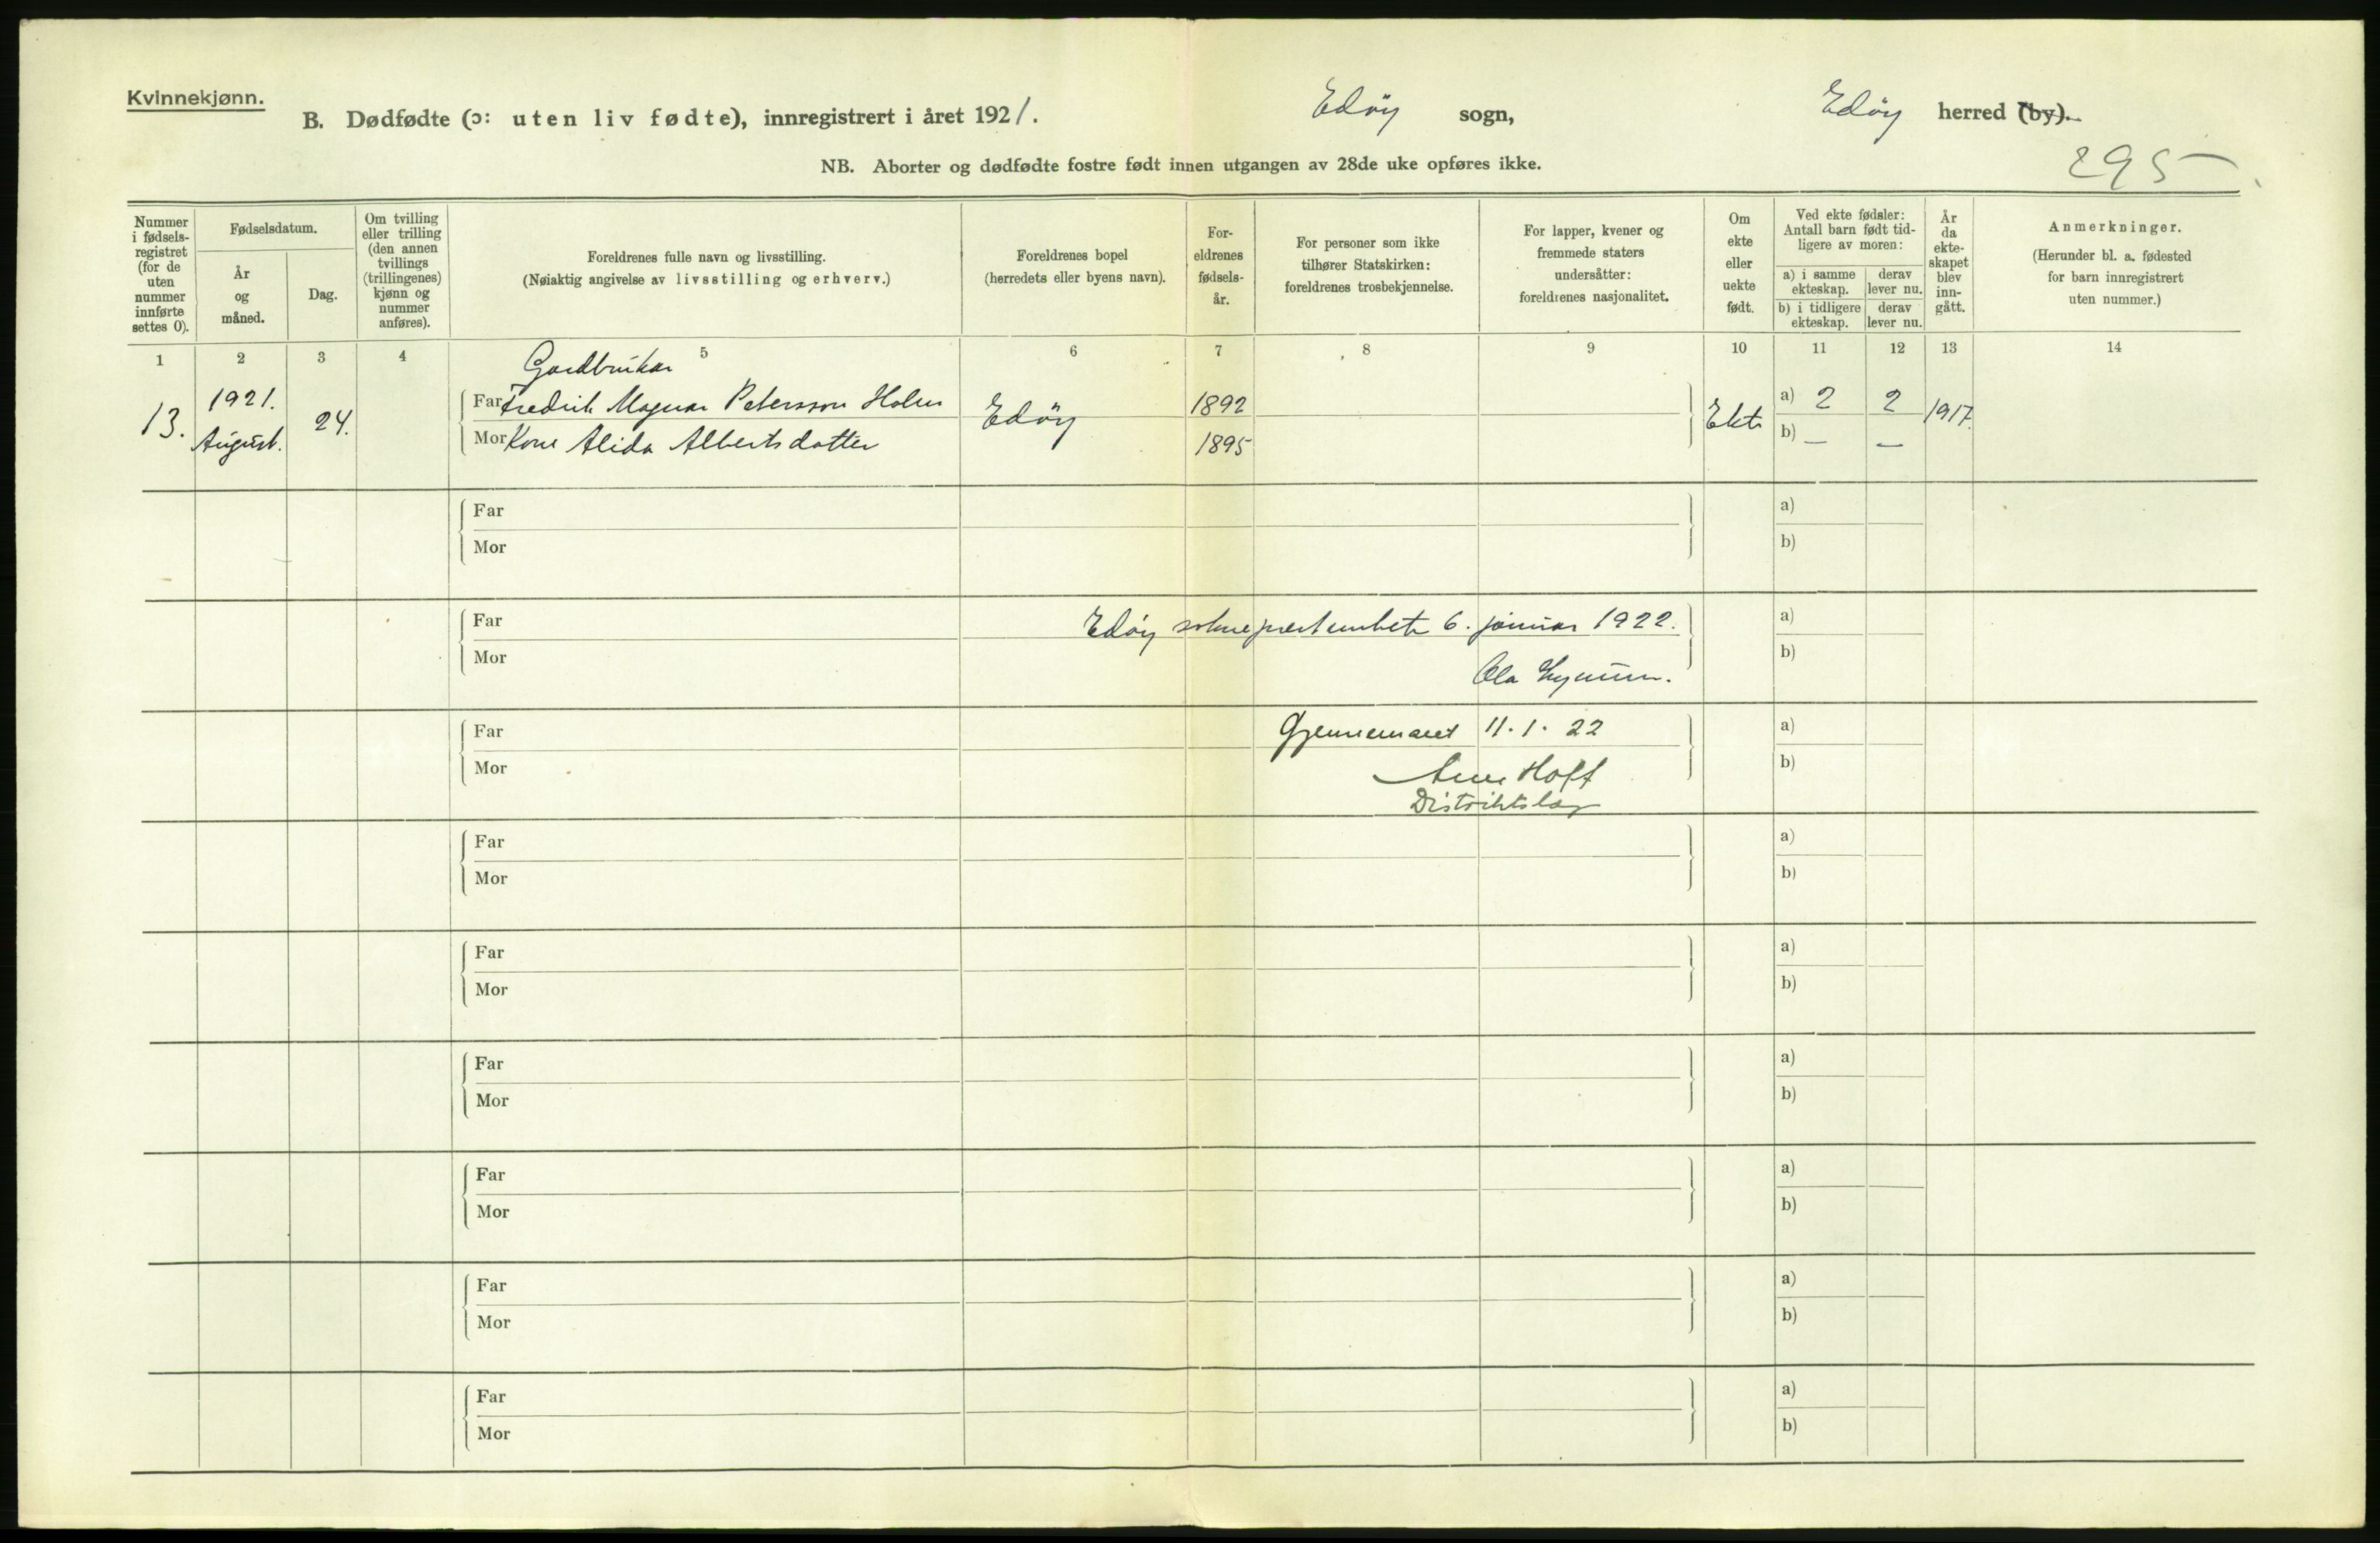 Kvinnekjønn.
B. Dødfødte (ɔ: uten liv fødte), innregistrert i året 1921. Edöy sogn, Edöy herred (by).
NB. Aborter og dødfødte fostre født innen utgangen av 28de uke opføres ikke.
295
Nummer i fødsels-registret (for de uten nummer innførte settes 0).
Fødselsdatum.
År og måned.
Dag.
Om tvilling eller trilling (den annen tvillings (trillingenes) kjønn og nummer anføres).
Foreldrenes fulle navn og livsstilling.
(Nøiaktig angivelse av livsstilling og erhverv.)
Foreldrenes bopel
(herredets eller byens navn).
For-eldrenes fødsels-år.
For personer som ikke tilhører Statskirken: foreldrenes trosbekjennelse.
For lapper, kvener og fremmede staters undersåtter: foreldrenes nasjonalitet.
Om ekte eller uekte født.
Ved ekte fødsler: Antall barn født tid-ligere av moren:
a) i samme ekteskap.
derav lever nu.
b) i tidligere ekteskap.
derav lever nu.
År da ekte-skapet blev inn-gått.
Anmerkninger.
(Herunder bl. a. fødested for barn innregistrert uten nummer.)
1 2 3 4 5 6 7 8 9 10 11 12 13 14
Gardbrukar
13. 1921. August. 24. Far Fredrik Magnar Petersson Holm Edöy 1892 Ekte a) 2 2 1917.
Mor Kone Alida Albertsdotter 1895 b) — —
Far a)
Mor b)
Far Edöy sokneprestembete 6. januar 1922. a)
Mor Ola b)
Far 11.1.22 a)
Mor Hoff b)
Distriktslæge
Far a)
Mor b)
Far a)
Mor b)
Far a)
Mor b)
Far a)
Mor b)
Far a)
Mor b)
Far a)
Mor b)